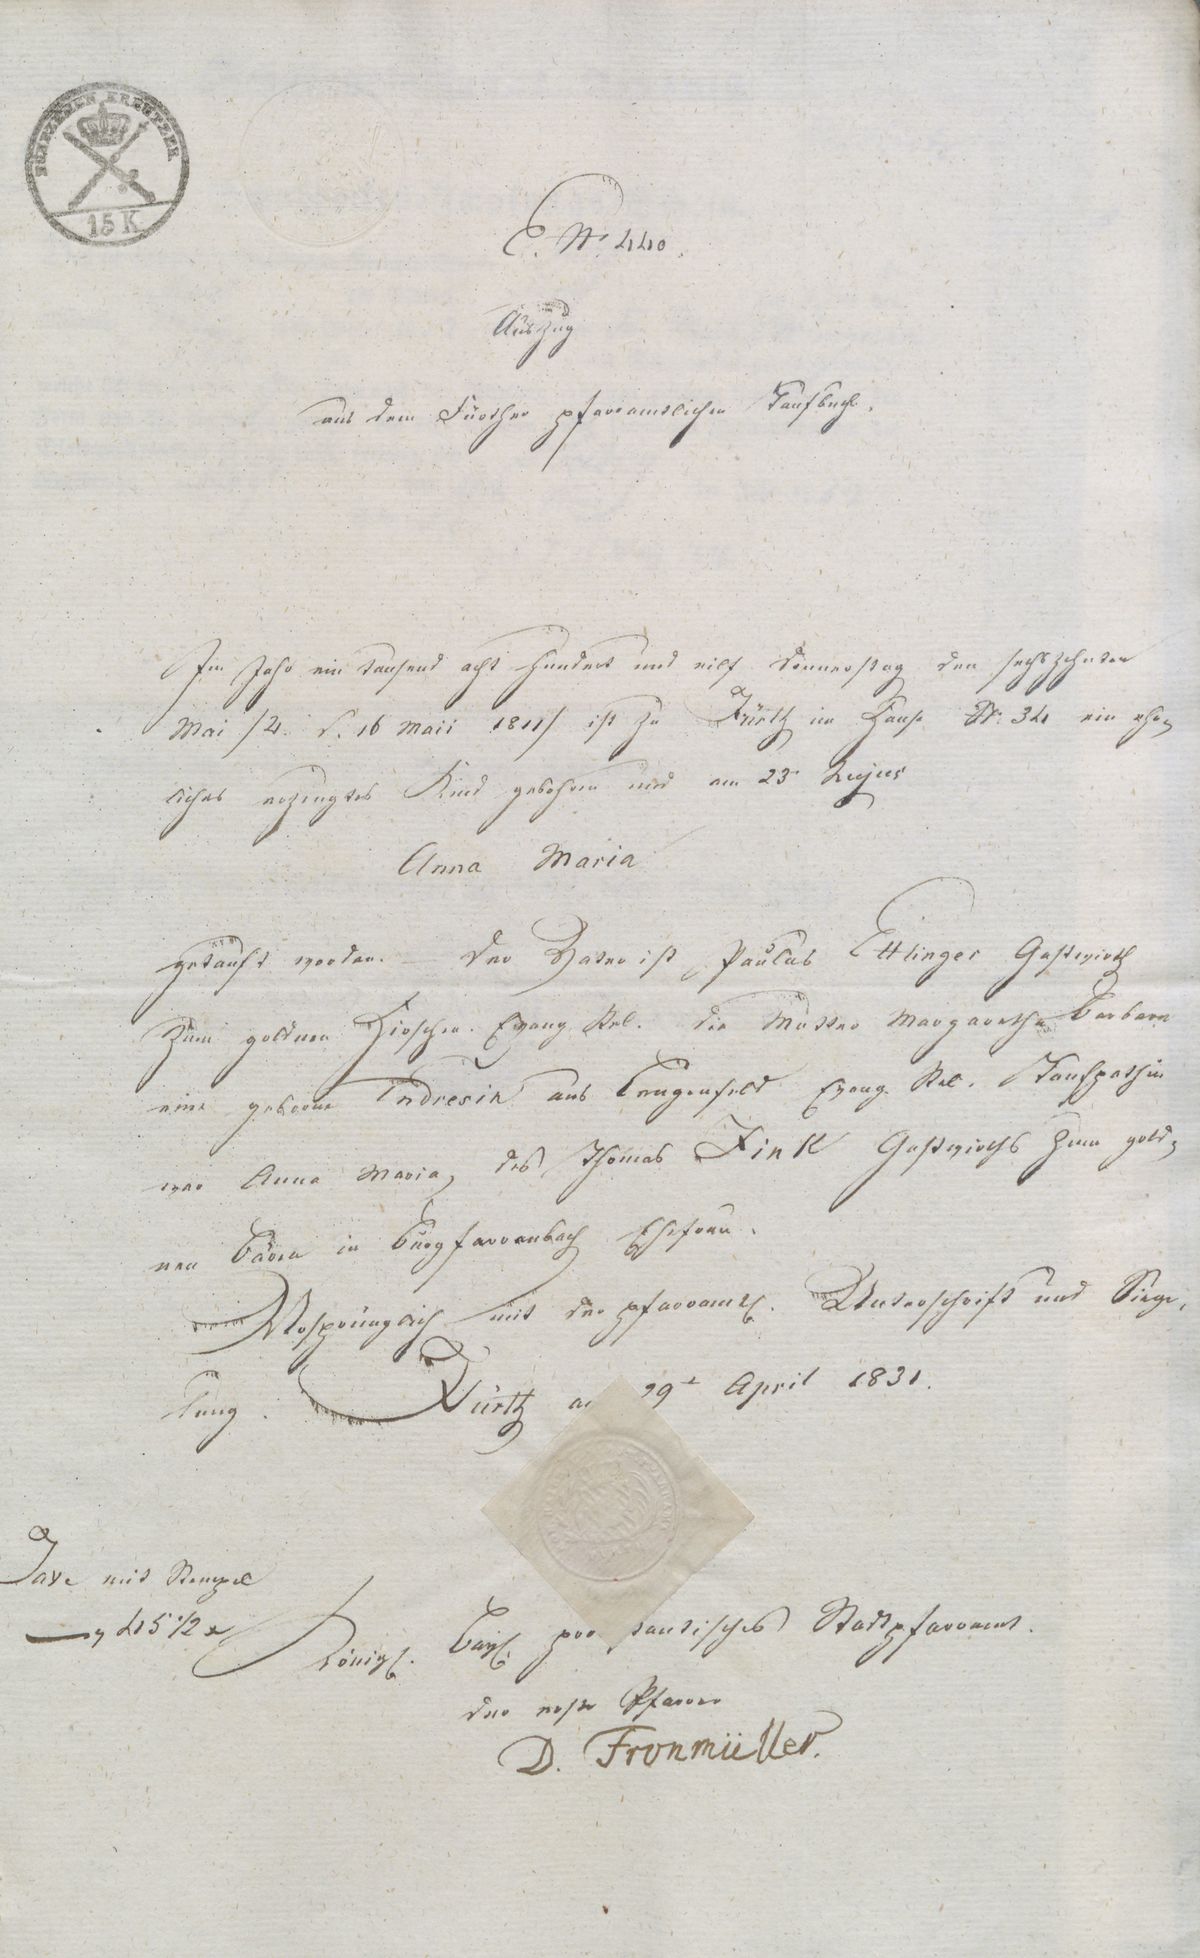 FÜNFZEHEN KREUTZER
15 K
E. Nr. 440.
Auszug
aus dem Fürther pfarramtlichen Taufbuche.
Im Jahr ein tausend acht hundert und eilf Donnerstag den sechszehnten
Mai /: d. 16 Maii 1811/ ist zu Fürth im Hause Nr. 34 ein ehe=
liches erzeugtes Kind gebohren und am 23 hujus
Anna Maria
getauft worden. – Der Vater ist Paulus Ettlinger Gastwirth
zum goldnen Hirschen. Evang. Rel. die Mutter Margaretha Barbara
eine geborne Endresin aus Lengenfeld Evang. Rel. Taufpathin
war Anna Maria, des Thomas Fink Gastwirths zum gold=
nen Bären in Burgfarrnbach Ehefrau.
Ursprünglich mit der pfarramtl. Unterschrift und Siege=
lung. Fürth 29t April 1831.
Taxe mit Stempel
45 1/2 x
Königl. Bayl. protestantisches Stadtpfarramt.
der erste Pfarrer
D. Fronmüller.